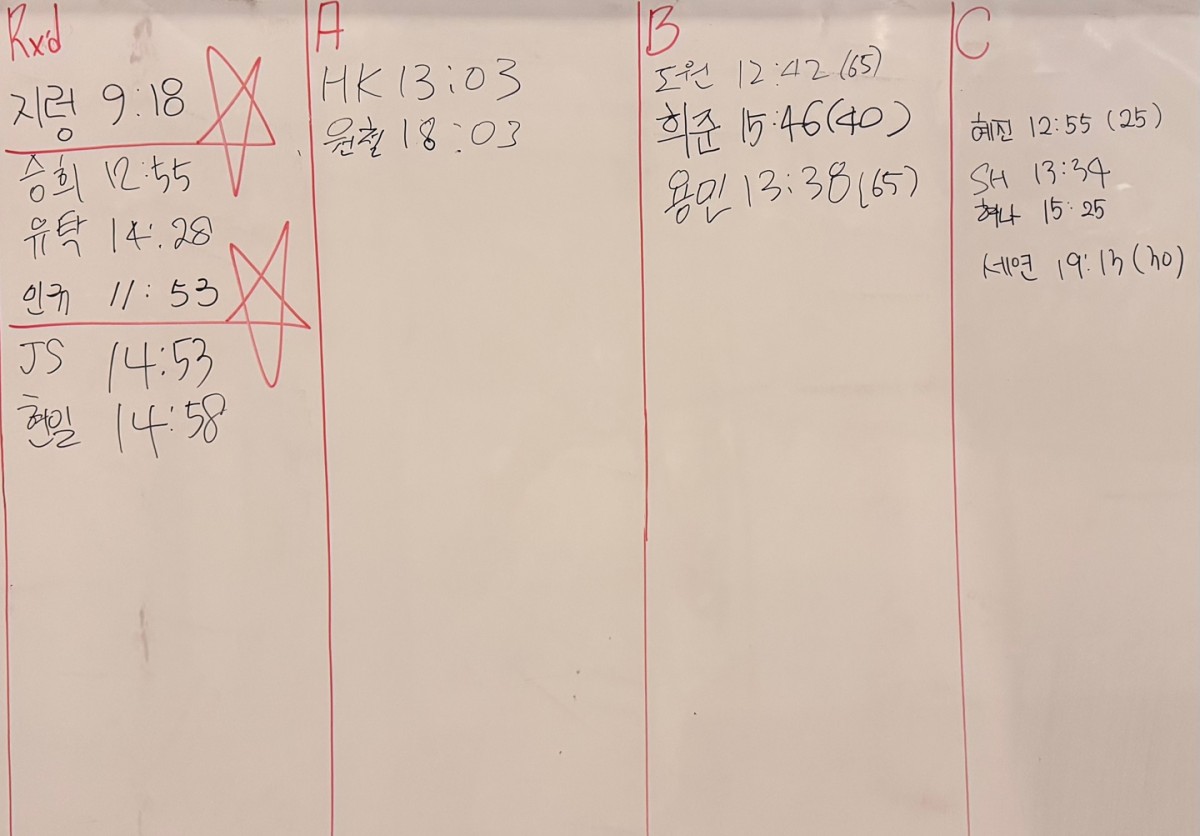 Rx'd
지렁 9:18
승희 12:55
유탁 14:28
인규 11:53
JS 14:53
현일 14:58
A
HK 13:03
원철 18:03
B
도원 12:42 (65)
희준 15:46 (40)
용민 13:38 (65)
C
혜진 12:55 (25)
SH 13:34
혀나 15:25
세연 19:13 (30)